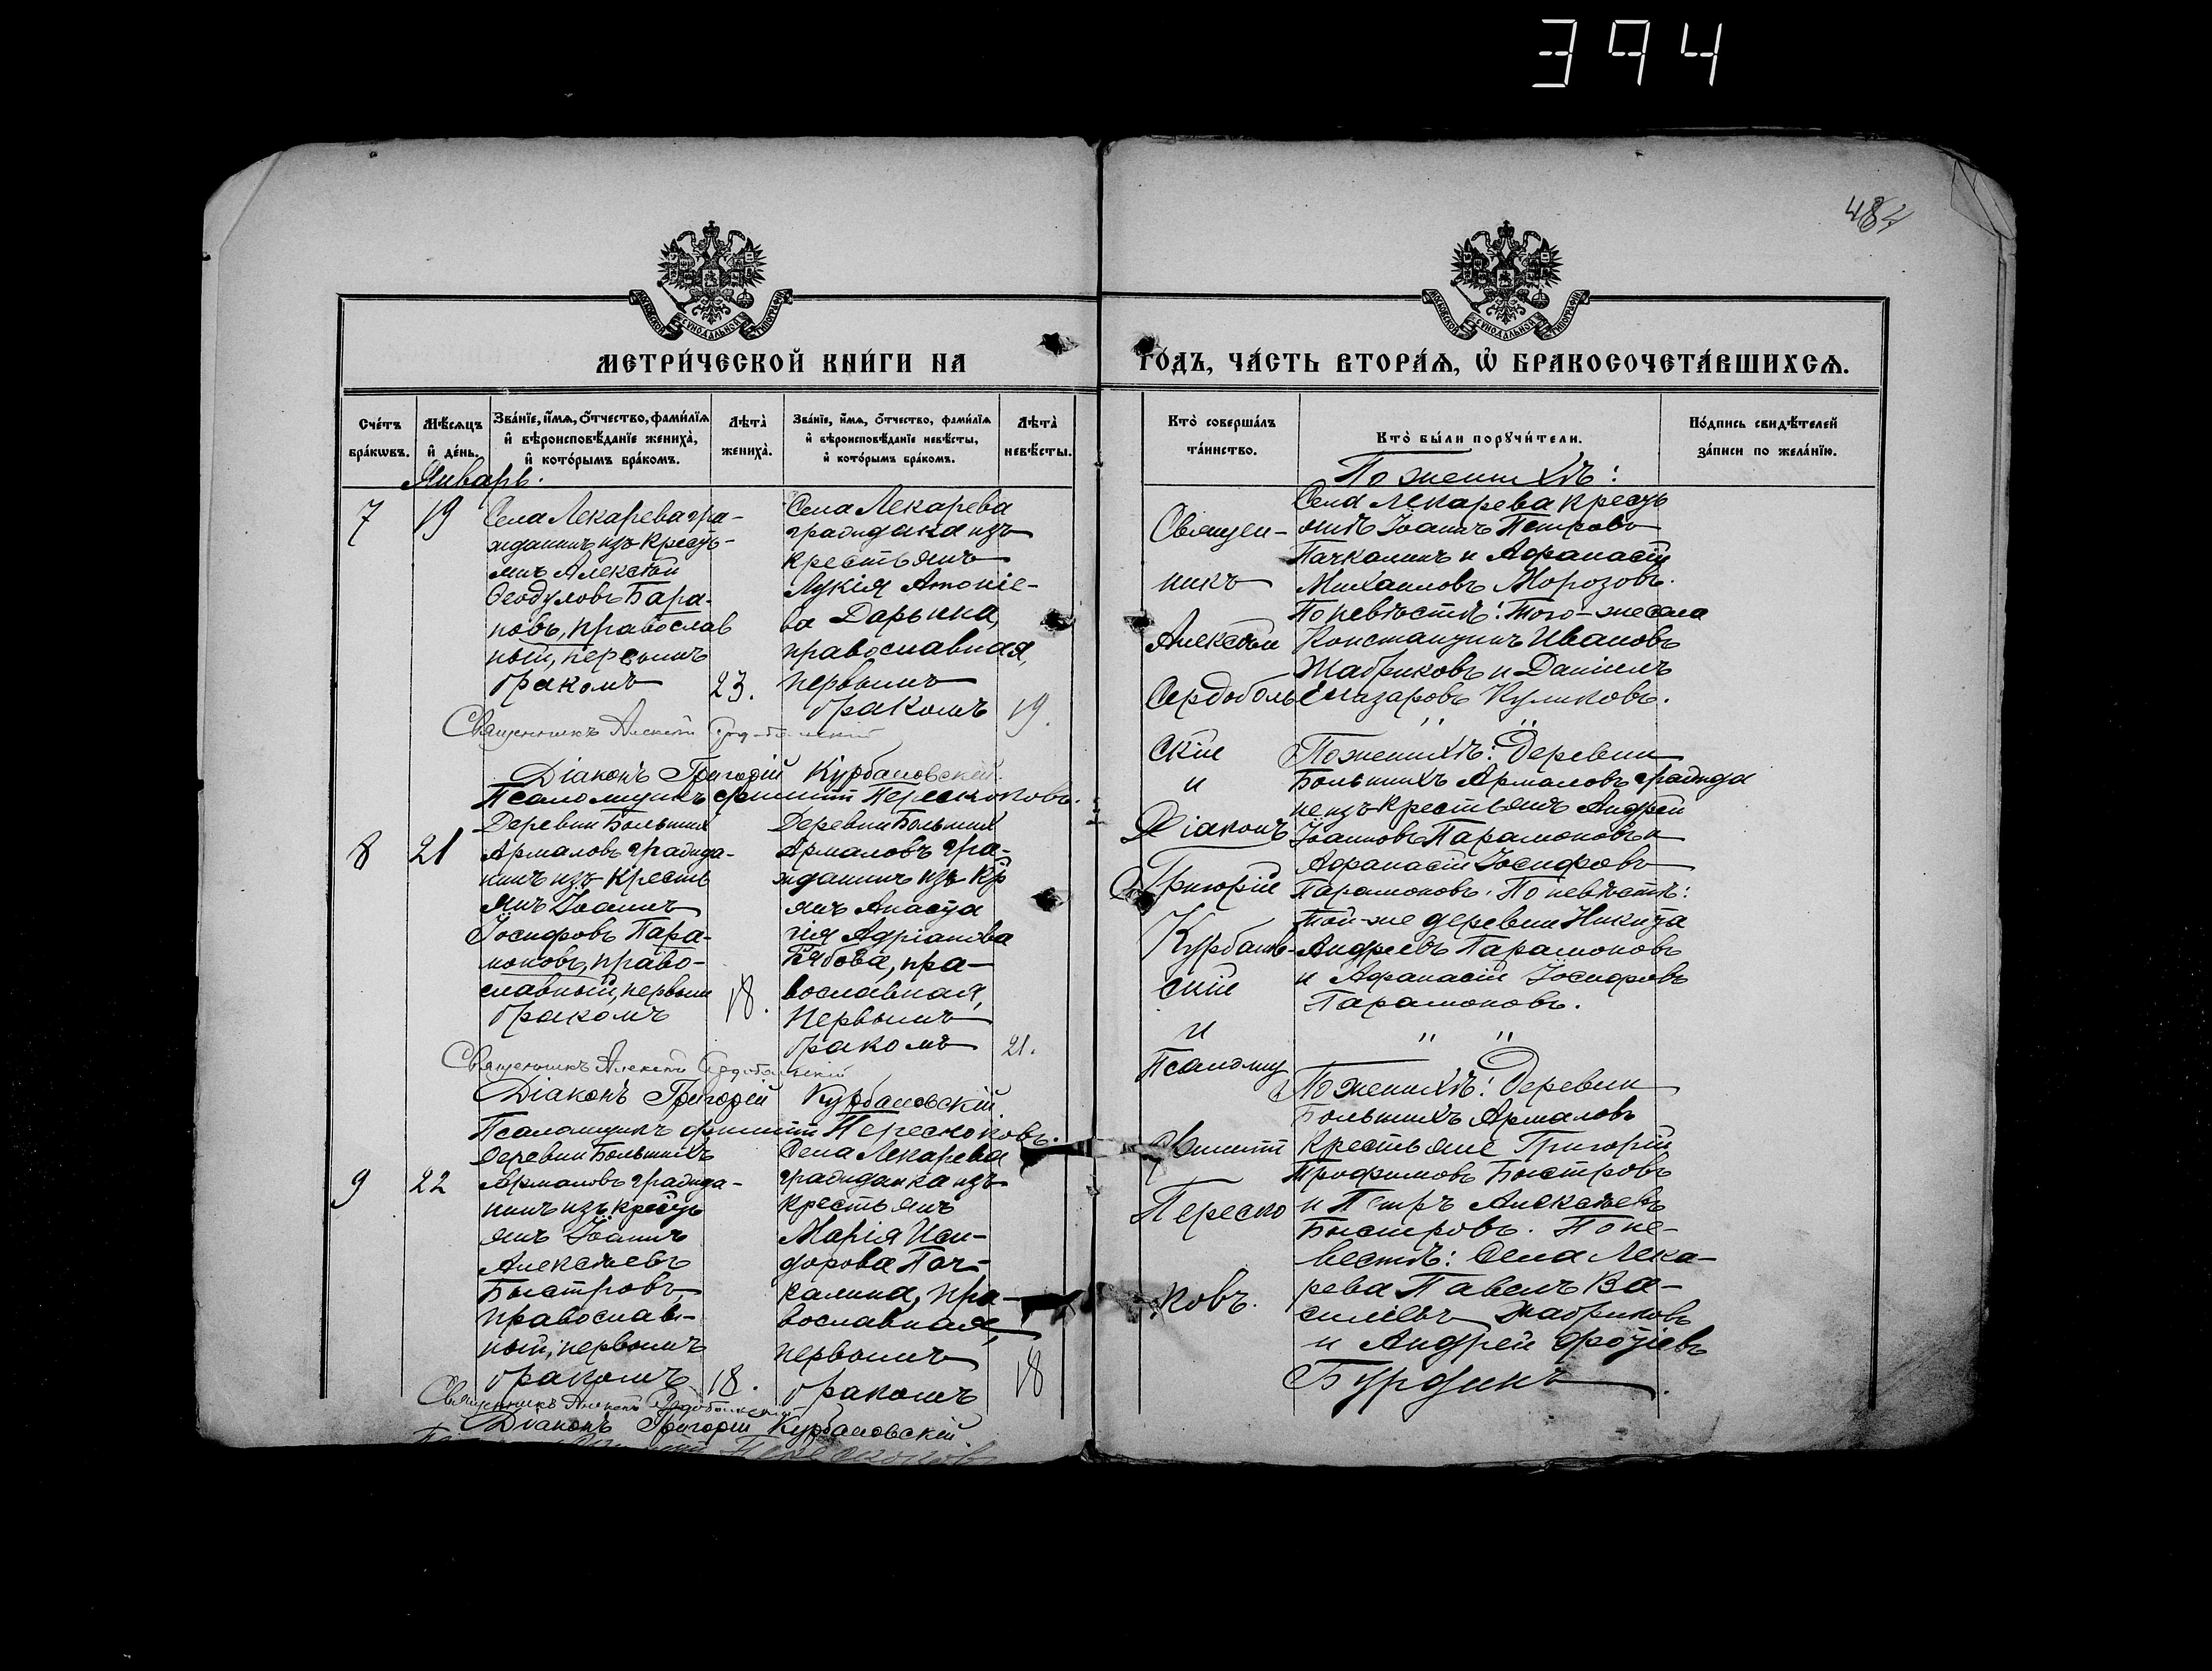 394
484
МЕТРИ́ЧЕСКОЙ КНИ́ГИ НА
ГО́ДЪ, ЧА́СТЬ ВТОРА́Ѧ, Ѡ҆ БРАКОСОЧЕТА́ВШИХСѦ.
Сче́тъ бра́кѡвъ.
Мѣ́сѧцъ и҆ де́нь.
Зва́нїе, и҆́мѧ, ѻ҆́тчество, фами́лїѧ
и҆ вѣроисповѣ́данїе жениха̀,
и҆ кото́рымъ бра́комъ.
Лѣта̀ жениха̀.
Зва́нїе, и҆́мѧ, ѻ҆́тчество, фами́лїѧ
и҆ вѣроисповѣ́данїе невѣ́сты,
и҆ кото́рымъ бра́комъ.
Лѣта̀ невѣ́сты.
Кто̀ соверша́лъ
та́инство.
Кто̀ бы́ли порꙋчи́тели.
По́дпись свидѣ́телей
за́писи по жела́нїю.
Январь.
7
19
Села Лекарева гра-
жданинъ изъ кресть-
янъ Алексѣй
Ѳеодуловъ Бара-
новъ, православ
ный, первымъ
бракомъ
23.
Села Лекарева
гражданка изъ
крестьянъ
Лукія Антоніе-
ва Дарьина,
православная,
первымъ
бракомъ
19.
Священникъ Алексѣй Сердобольскій
Діаконъ Григорій Курбановскій.
Псаломщикъ Филиппъ Перескоковъ.
8
21
Деревни Большихъ
Армаловъ гражда-
нинъ изъ кресть
янъ Іоаннъ
Іосифовъ Пара-
моновъ, право-
славный, первым
бракомъ
18.
Деревни Большихъ
Армаловъ гра-
жданинъ изъ кр
янъ Анаста
сія Адріанова
православная,
Первымъ
бракомъ
21.
Священникъ Алексѣй Сердобольскій
Діаконъ Григорій Курбановскій.
Псаломщикъ Филиппъ Перескоковъ.
9
22
Деревни Большихъ
Армаловъ гражда-
нинъ изъ кресть
янъ Іоаннъ
Алексѣевъ
Быстровъ,
православ-
ный, первымъ
бракомъ
18.
Села Лекарева
гражданка изъ
крестьянъ
Марія Иси-
дорова Пач-
калина, пра-
вославная,
первымъ
бракомъ
18
Священникъ Алексѣй Сердобольскій
Діаконъ Григорій Курбановскій.
Перескоковъ
Священ-
никъ
Алексѣй
Сердоболь
скій
и
Діаконъ
Григорій
Курбанов-
скій
и
Псаломщ
Филиппъ
Переско
ковъ.
По женихѣ:
Села Лекарева кресть
янинъ Іоаннъ Петровъ
Пачкалинъ и Афанасій
Михаиловъ Морозовъ.
По невѣстѣ: того-же села
Константинъ Ивановъ
Жабриковъ и Даніилъ
Назаровъ Куликовъ.
" "
По женихѣ: Деревни
Большихъ Армаловъ гражда
не изъ крестьянъ Андрей
Іоанновъ Парамоновъ и
Афанасій Іосифовъ
Парамоновъ. По невѣстѣ:
той-же деревни Никита
Андреевъ Парамоновъ
и Афанасій Іосифовъ
Парамоновъ.
" "
По женихѣ: Деревни
Большихъ Армаловъ
Крестьяне Григорій
Трофимовъ Быстровъ
и Петръ Алексѣевъ
Быстровъ. По не-
вестѣ: Села Лека-
рева Павелъ Ва-
сильевъ Жабриковъ
и Андрей Фотіевъ
Бурдинъ.